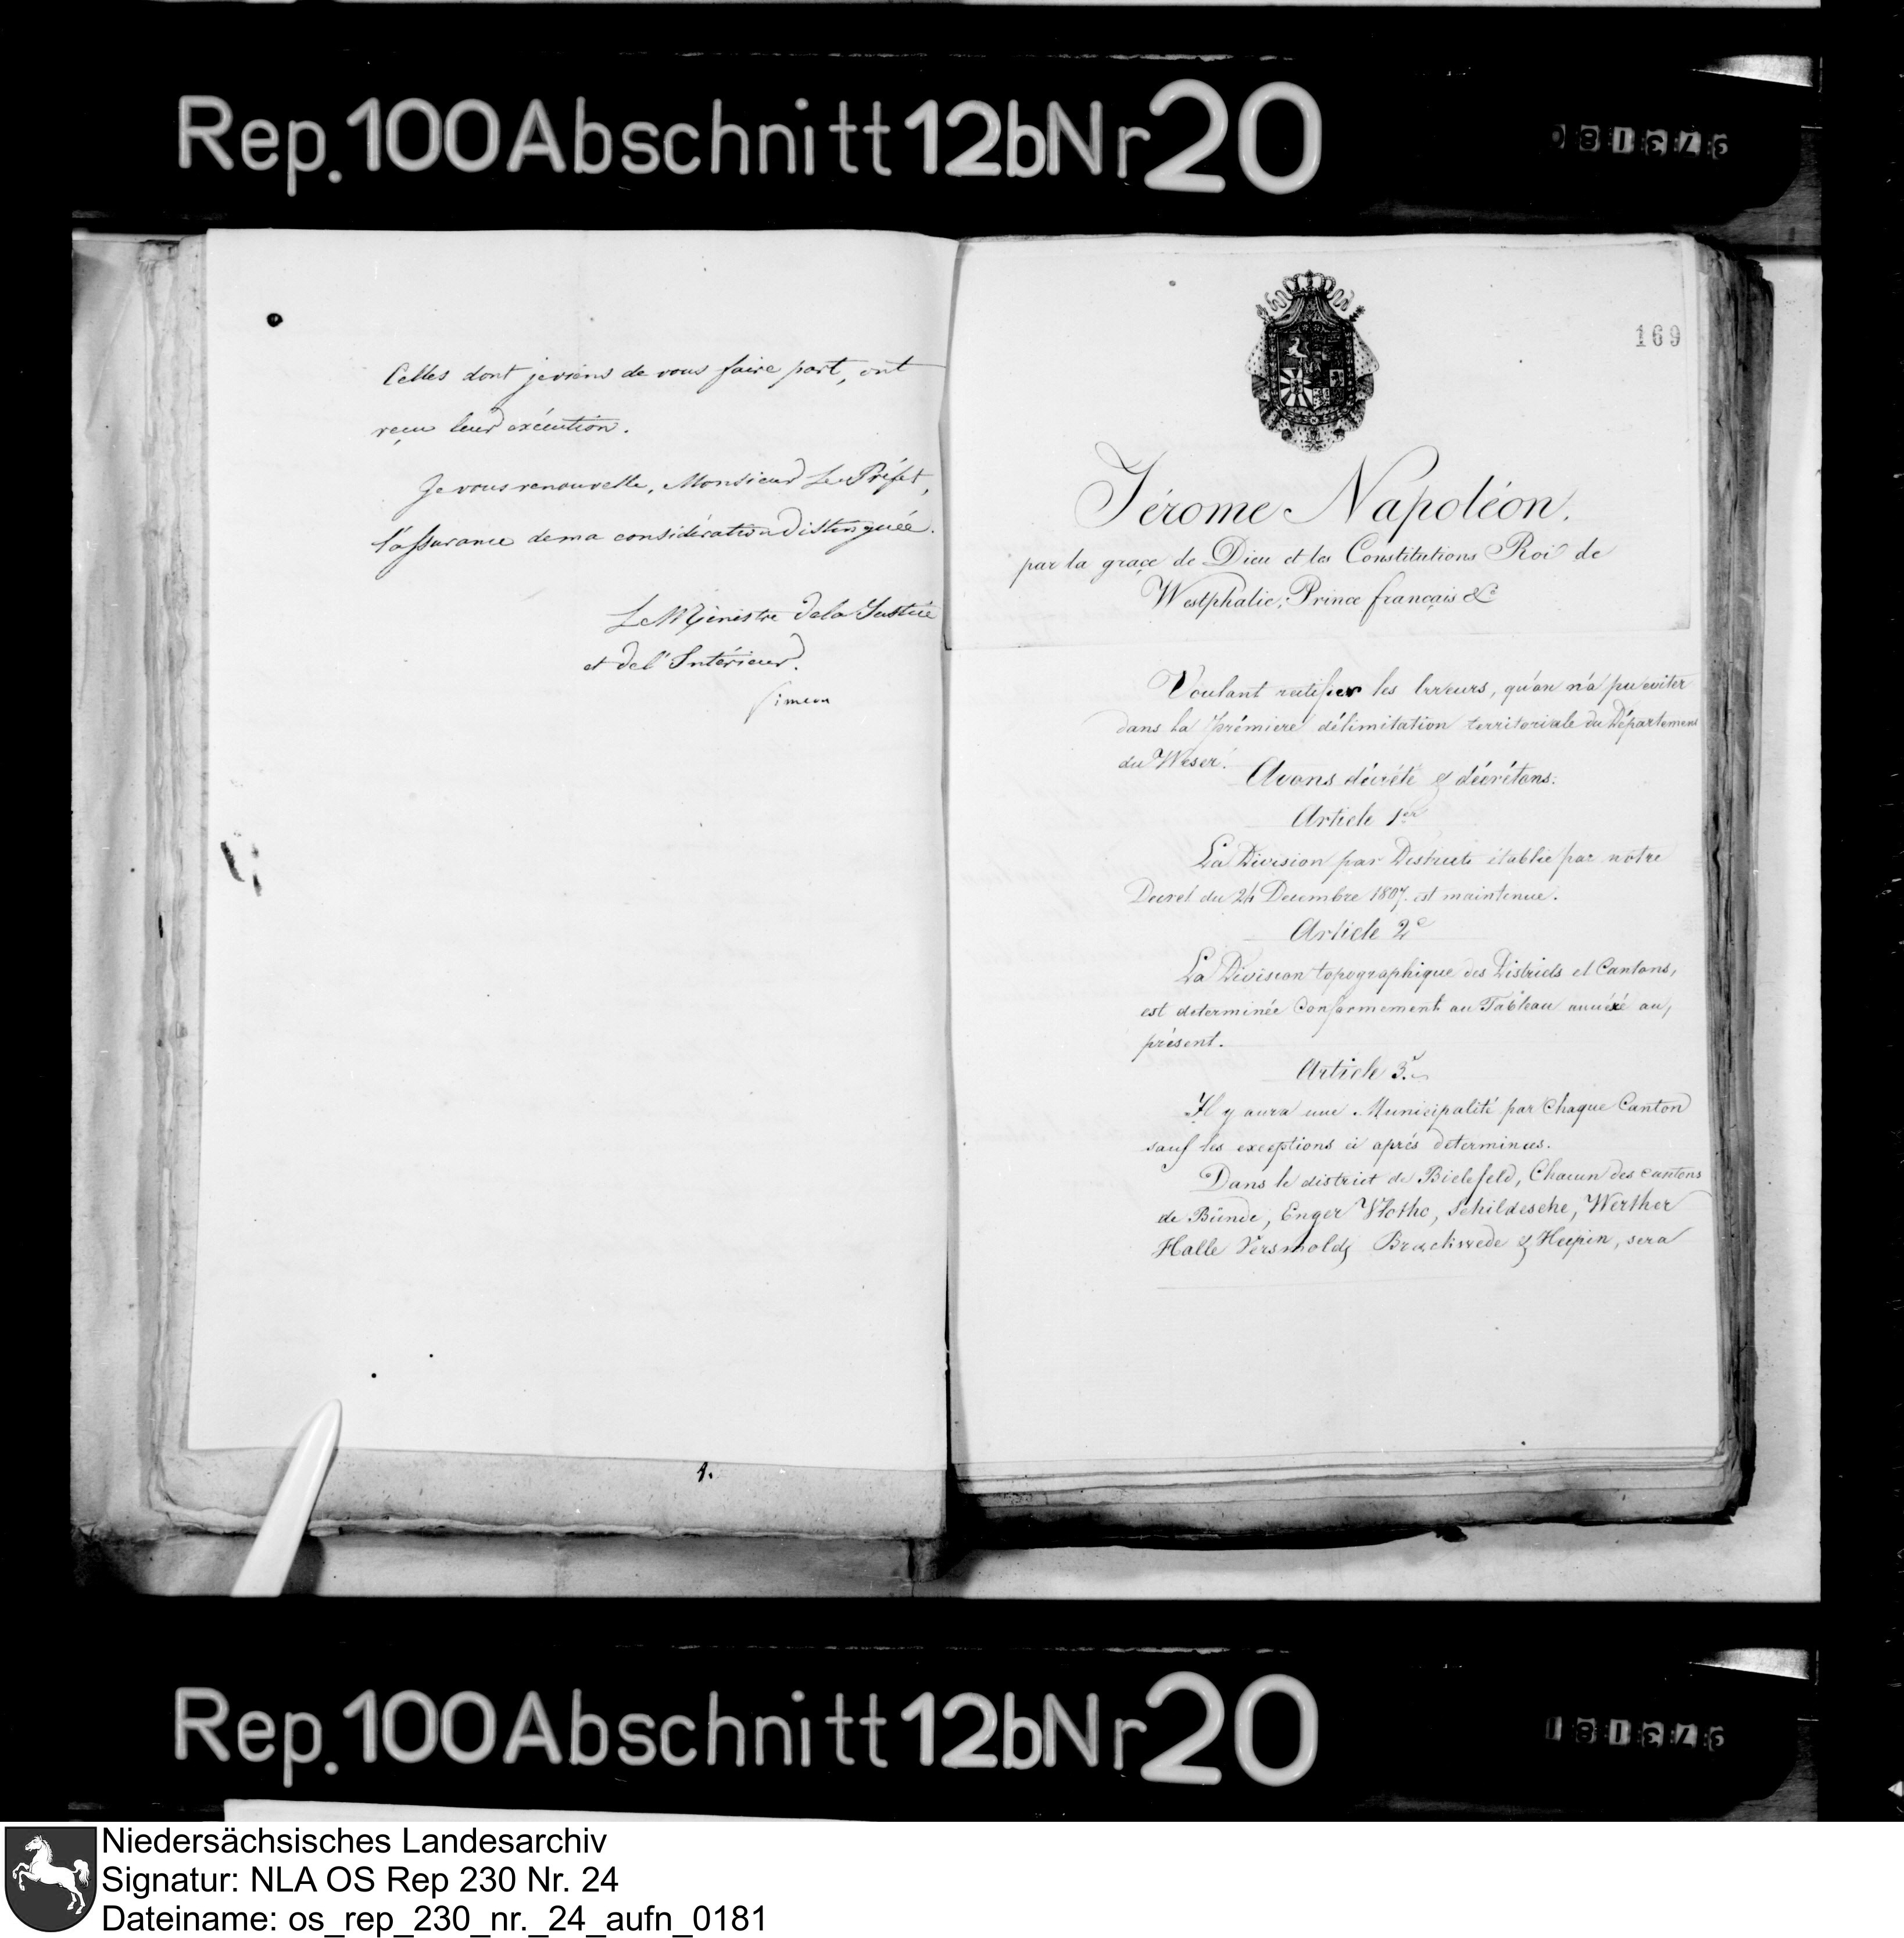 Rep. 100 Abschnitt 12b Nr 20
Celles dont je viens de vous faire part, ont
reçu leur exécution.
Je vous renouvelle, Monsieur Le Préfet,
l'assurance de ma considération distinguée.
Le Ministre de la Justice
et de l'Intérieur.
Simeon
1.
169
Jérome Napoléon,
par la graçe de Dieu et les Constitutions Roi de
Westphalie, Prince français &c
Voulant rectifier les Erreurs, qu'on n'a pu eviter
dans la prémiere délimitation territoriale du Département
du Weser.
Avons décrété & décrétons:
Article 1er
La Division par Districts établie par notre
Decret du 24 Decembre 1807. est maintenue.
Article 2e
La Division topographique des Districts et Cantons,
est determinée Conformement au Tableau annéxé au,
présent.
Article 3.
Il y aura une Municipalité par Chaque Canton
sauf les exceptions ci aprés determinées.
Dans le district de Bielefeld, Chacun des cantons
de Bünde, Enger Vlotho, Schildesche, Werther
Halle Versmold, Brackwede & Heepin, sera
Rep. 100 Abschnitt 12b Nr 20
Niedersächsisches Landesarchiv
Signatur: NLA OS Rep 230 Nr. 24
Dateiname: os_rep_230_nr._24_aufn_0181